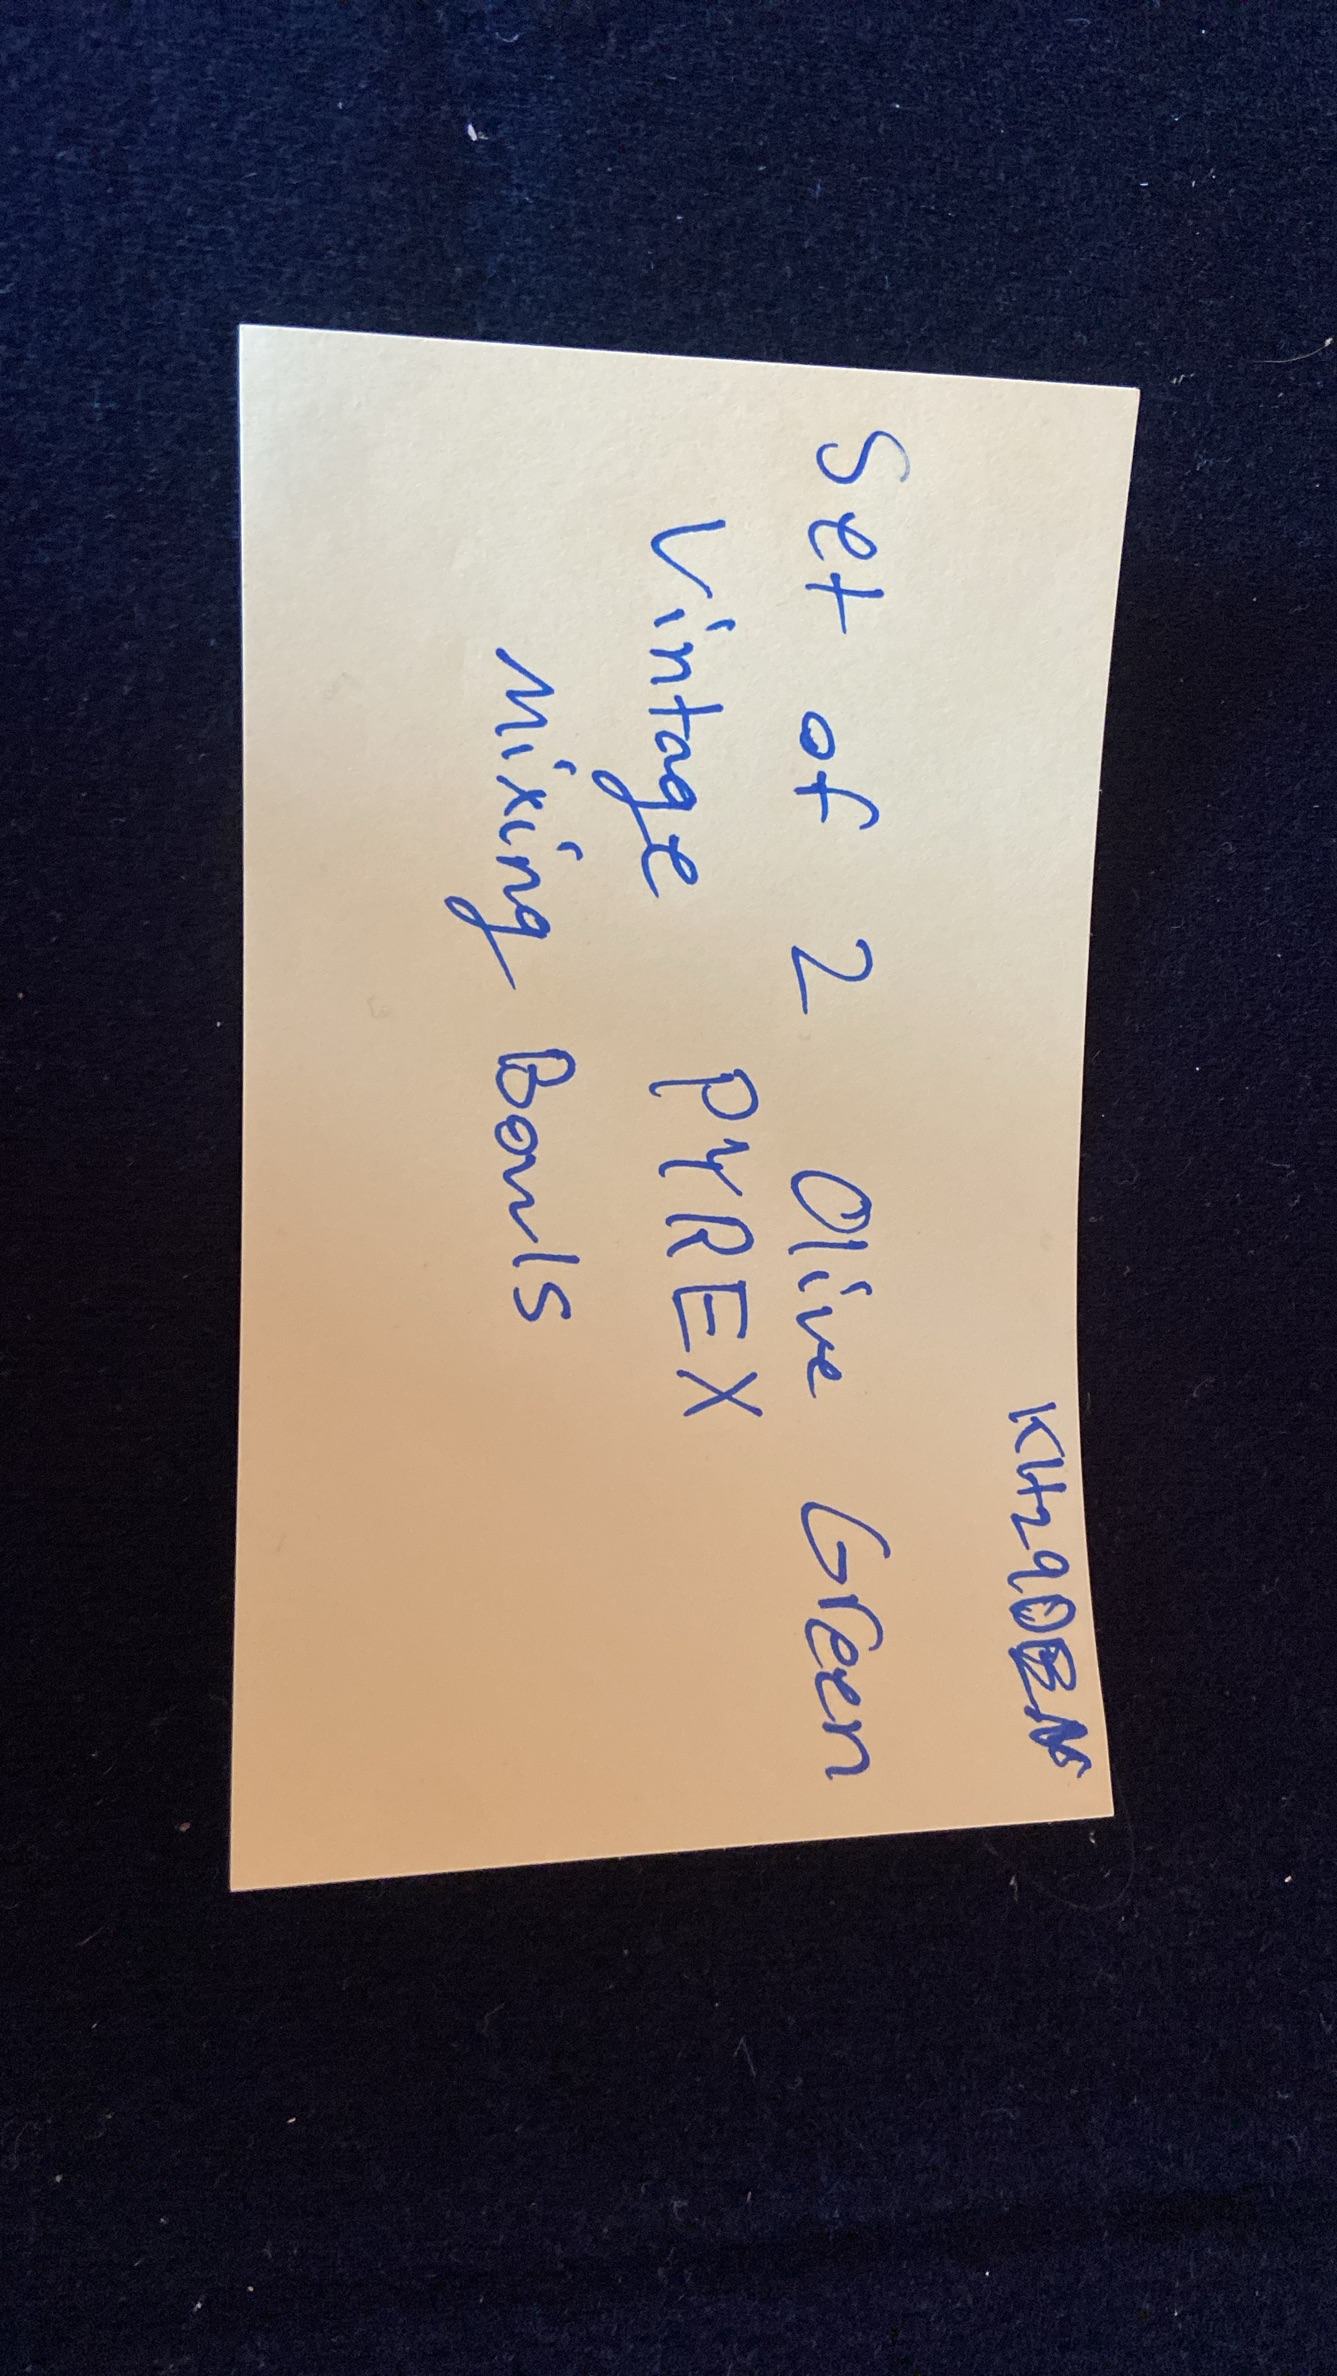 Set of 2 Olive Green
Vintage PYREX
Mixing Bowls